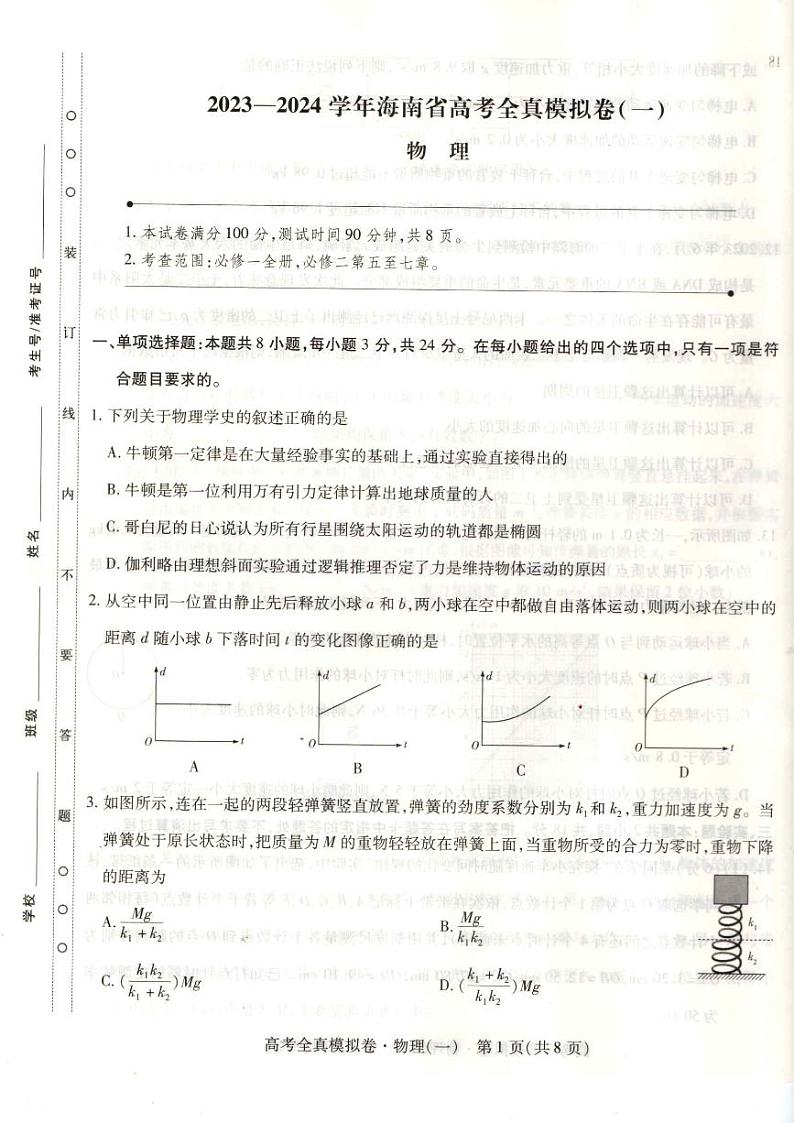 2023—2024学年海南省高考全真模拟卷(一)
物 理
1. 本试卷满分100分,测试时间90分钟,共8页。
2. 考查范围:必修一全册,必修二第五至七章。
一、单项选择题:本题共8小题,每小题3分,共24分。在每小题给出的四个选项中,只有一项是符
合题目要求的。
1. 下列关于物理学史的叙述正确的是
A. 牛顿第一定律是在大量经验事实的基础上,通过实验直接得出的
B. 牛顿是第一位利用万有引力定律计算出地球质量的人
C. 哥白尼的日心说认为所有行星围绕太阳运动的轨道都是椭圆
D. 伽利略由理想斜面实验通过逻辑推理否定了力是维持物体运动的原因
2. 从空中同一位置由静止先后释放小球a和b,两小球在空中都做自由落体运动,则两小球在空中的
距离d随小球b下落时间t的变化图像正确的是
d d d d
O t O t O t O t
A B C D
3. 如图所示,连在一起的两段轻弹簧竖直放置,弹簧的劲度系数分别为k₁和k₂,重力加速度为g。当
弹簧处于原长状态时,把质量为M的重物轻轻放在弹簧上面,当重物所受的合力为零时,重物下降
的距离为
A. Mg/(k₁+k₂) B. Mg/(k₁k₂)
C. (k₁k₂/(k₁+k₂))Mg D. ((k₁+k₂)/(k₁k₂))Mg
k₁
k₂
高考全真模拟卷·物理(一) 第1页(共8页)
学校
班级
姓名
考生号/准考证号
装
订
线
内
不
要
答
题